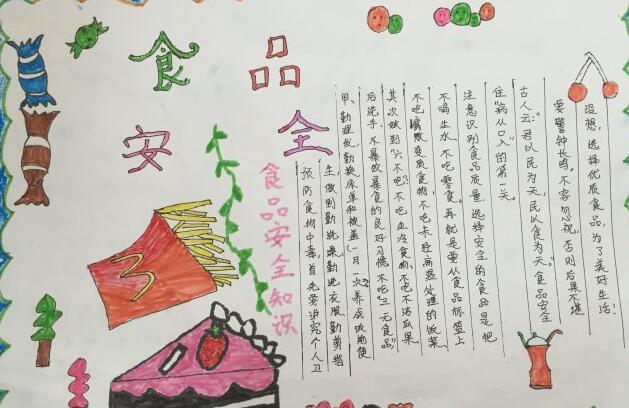 食品
安全
食品安全知识
预防食物中毒,首先要讲究个人卫
生,做到勤洗澡勤洗衣服勤剪指
甲、勤理发勤换床单和被盖(一月一次)养成饭前便
后洗手,不暴饮暴食的良好习惯,不吃"三无食品",
其次做到"六不吃",不吃生冷食物,不吃不洁瓜果
不吃腐败变质食物,不吃未经高温处理的饭菜,
不喝生水,不吃零食。再就是要从食品标签上
注意识别食品质量,选择安全的食品是把
住"病从口入"的第一关。
古人云:君以民为天,民以食为天。食品安全
要警钟长鸣,不容忽视,否则后果不堪
设想,选择优质食品,为了美好生活!